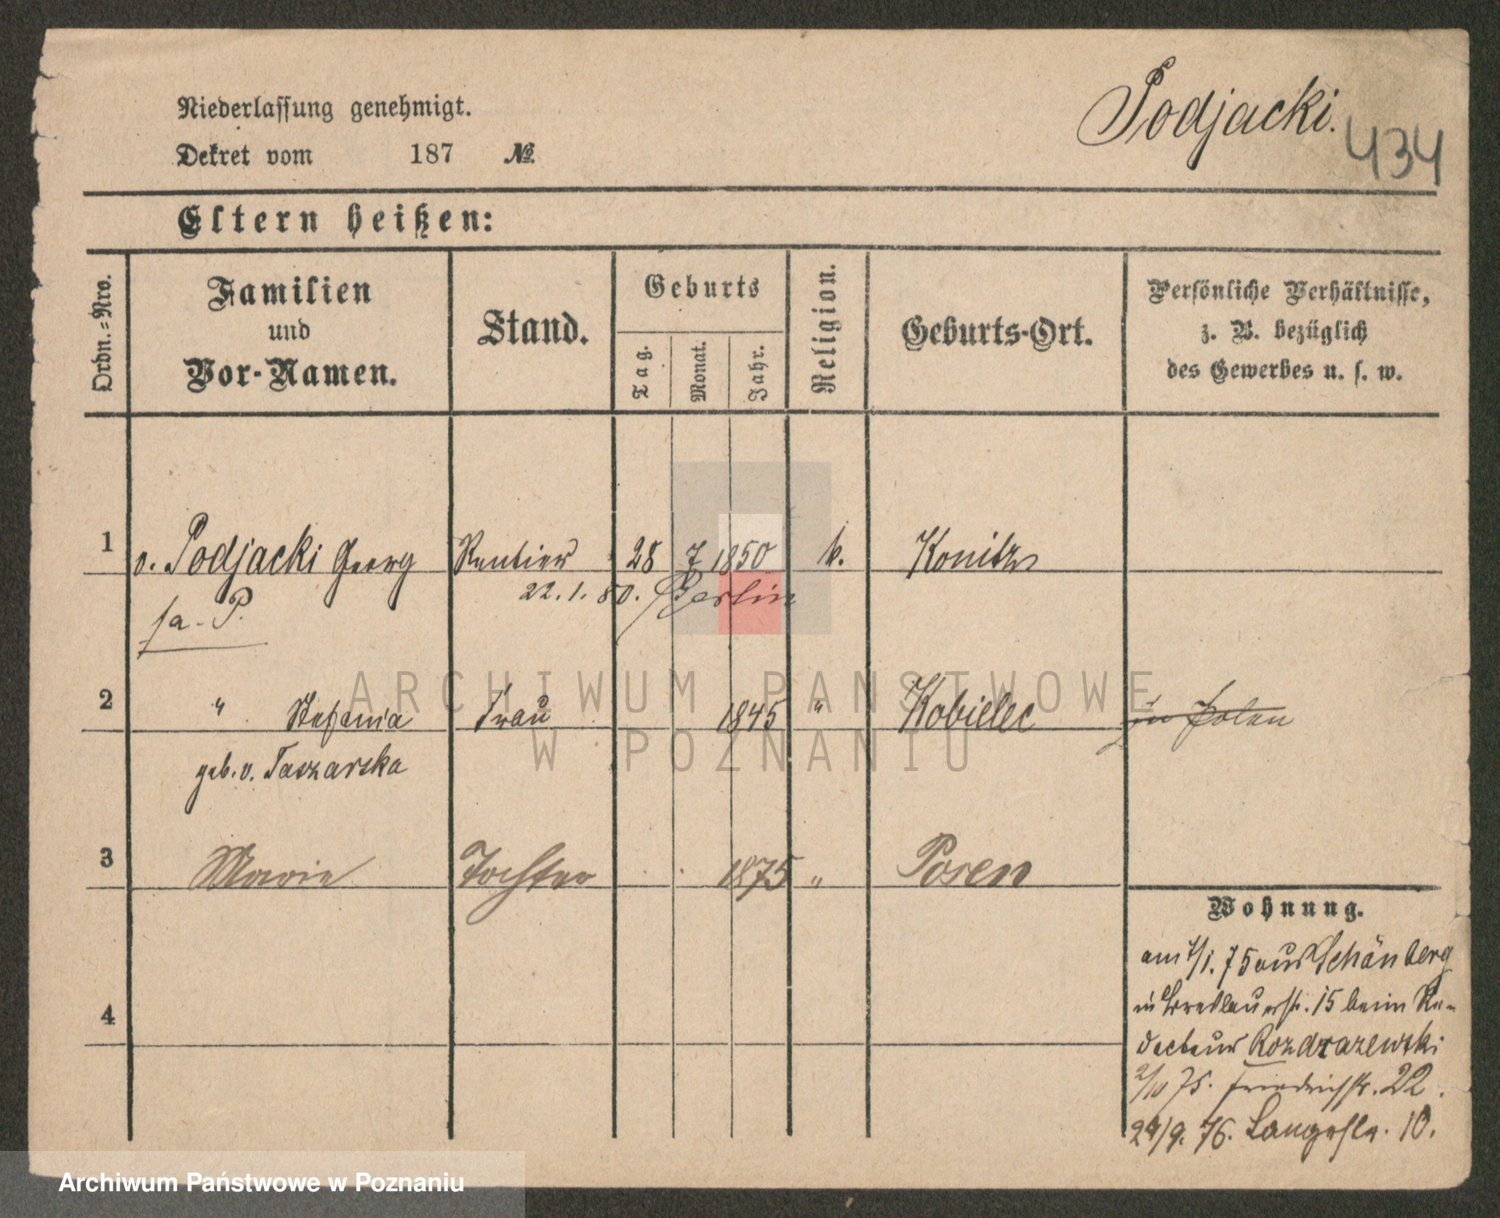 Niederlassung genehmigt.
Podjacki.
434
Dekret vom 187 №
Eltern heißen:
Ordn.-Nro.
Familien
und
Vor-Namen.
Stand.
Geburts
Tag.
Monat.
Jahr.
Religion.
Geburts-Ort.
Persönliche Verhältnisse,
z. B. bezüglich
des Gewerbes u. s. w.
1 v. Podjacki Georg Rentier 28 7 1850 k. Konitz
22.1.80. Berlin
fa. P.
2 " Stefania Frau 1845 " Kobielec in Polen
geb. v. Taszarska
3 Marie Tochter 1875 " Posen
Wohnung.
am 7/1. 75 aus Schönberg
in Breslauerstr. 15 beim Re-
dacteur Rozdrazewski
2/10 75. Friedrichstr. 22.
29/9. 76. Langestr. 10.
4
ARCHIWUM PAŃSTWOWE
W POZNANIU
Archiwum Państwowe w Poznaniu